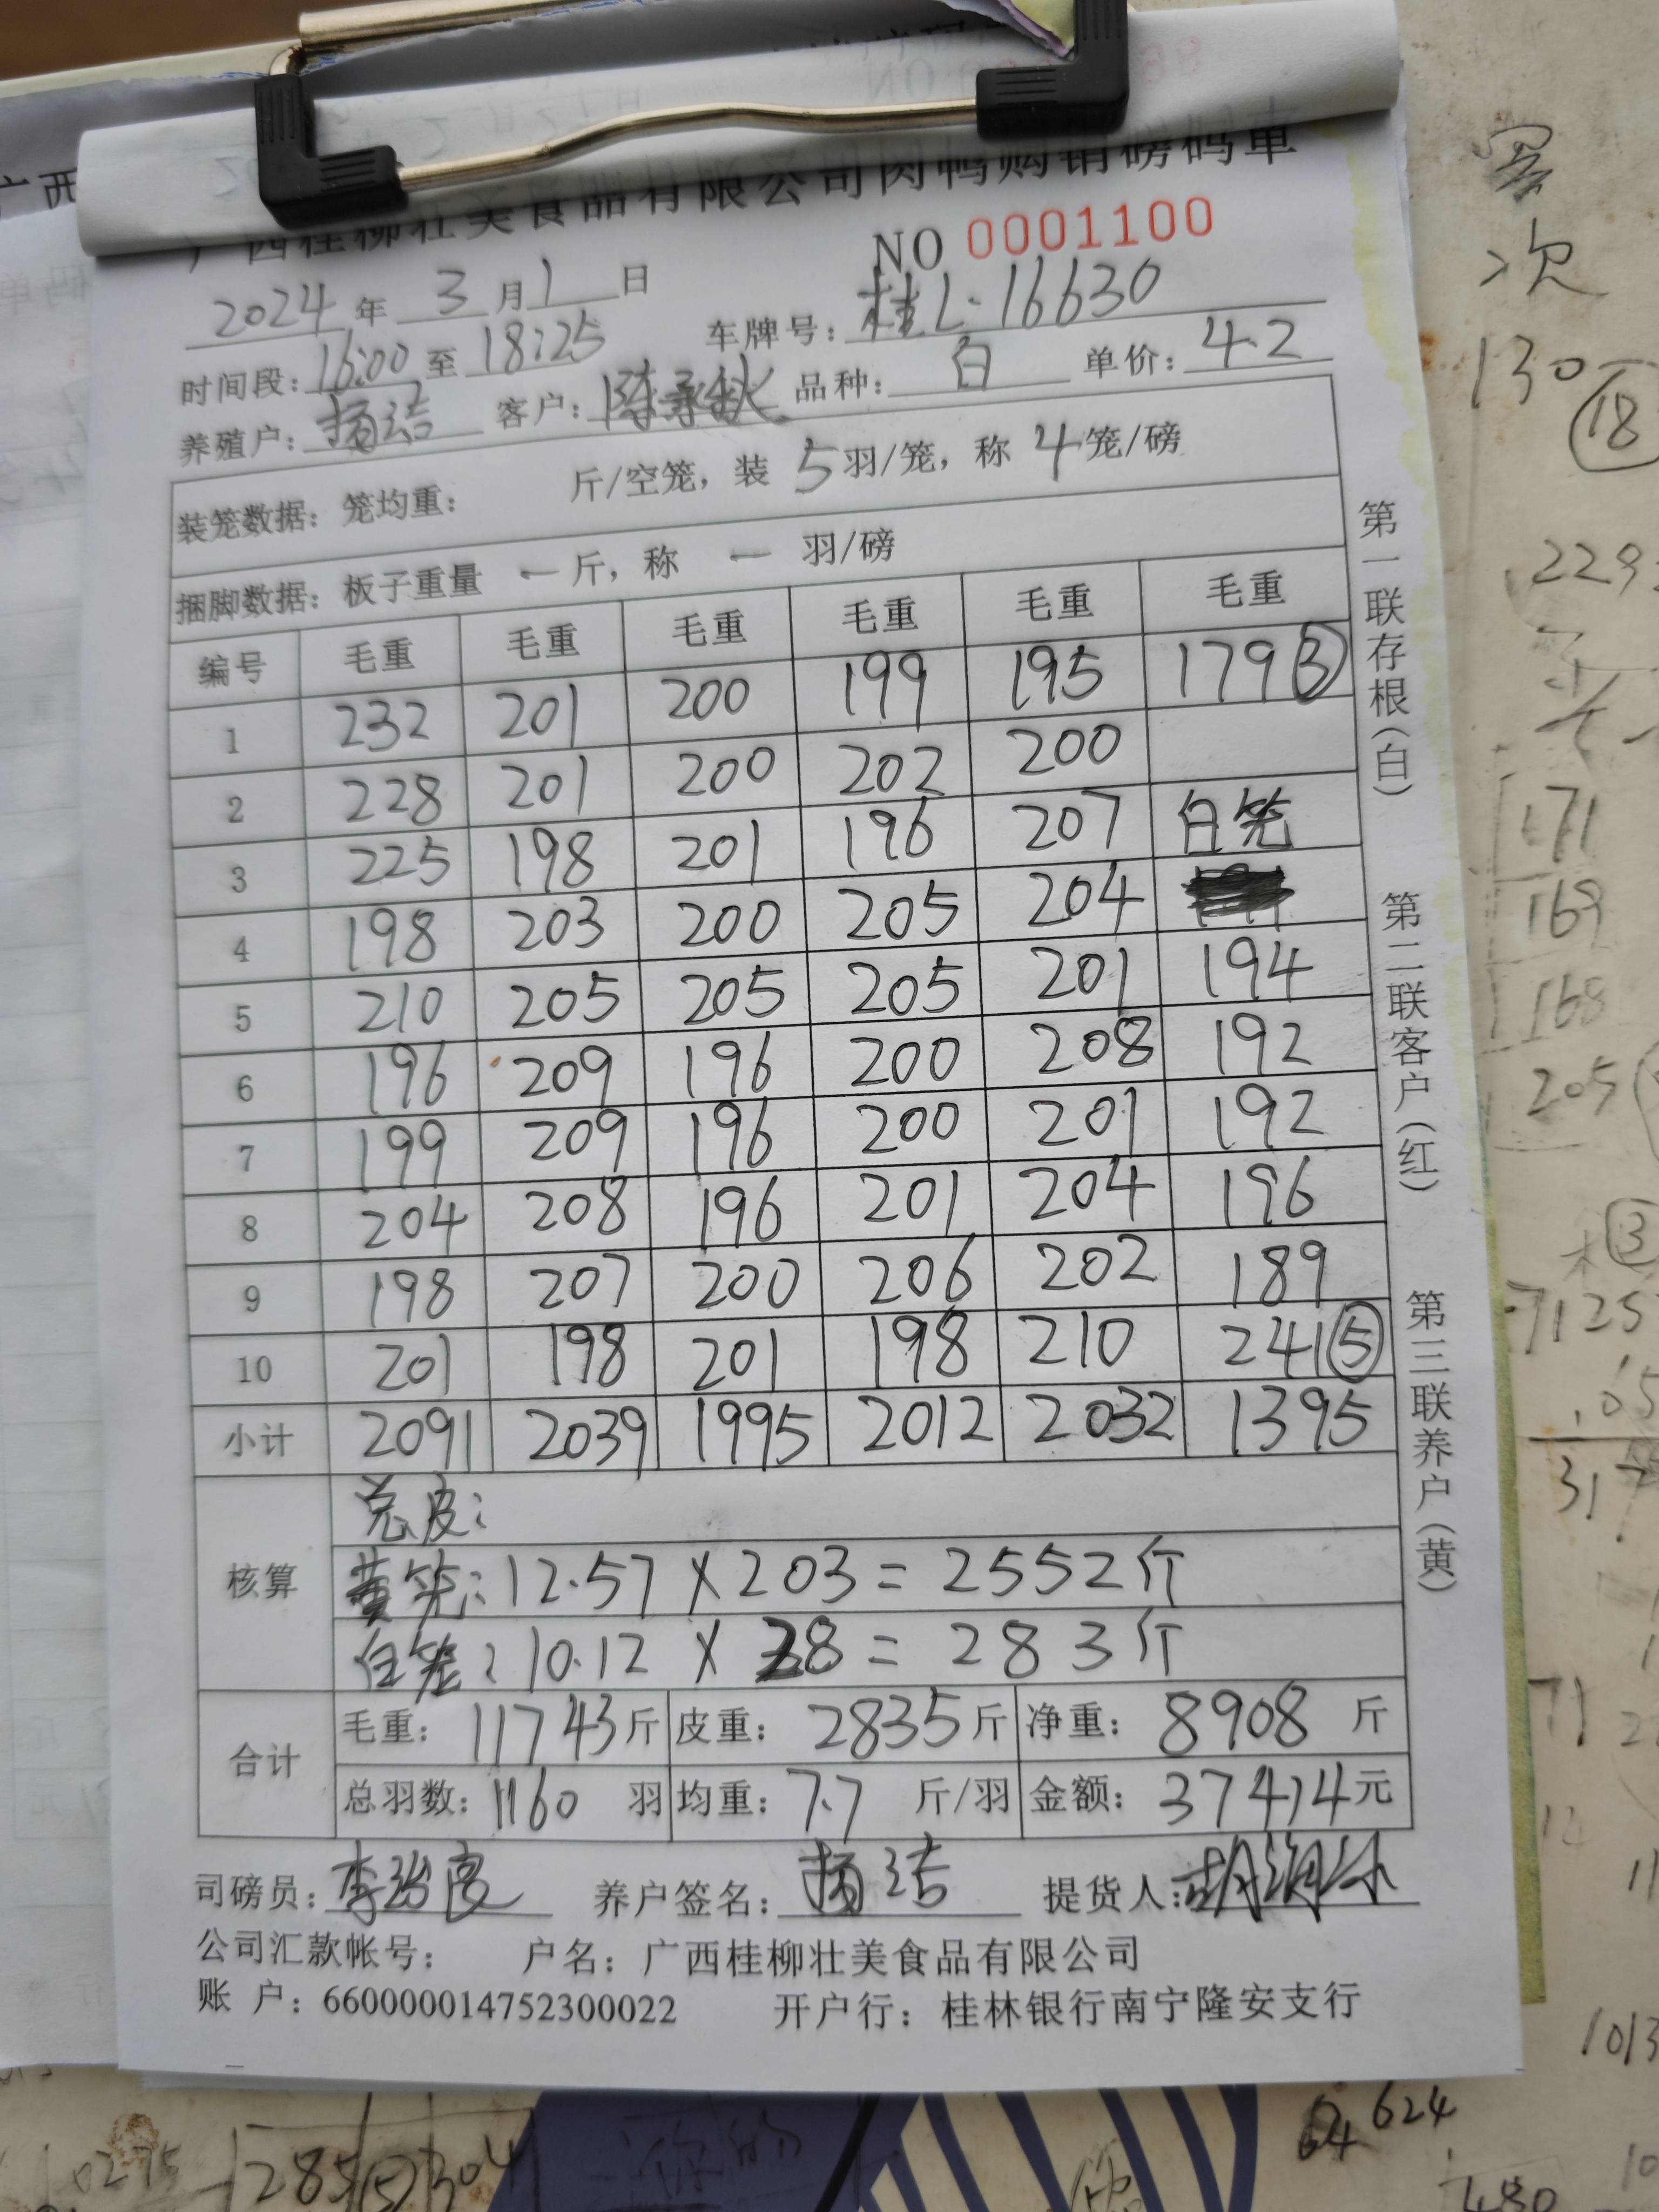 广西桂柳壮美食品有限公司肉鸭购销磅码单
NO 0001100
2024 年 3 月 1 日
车牌号: 桂L·16630
时间段: 16:00 至 18:25
品种: 白 单价: 4.2
养殖户: 杨洁 客户: 陈承秋
装笼数据: 笼均重: 斤/空笼, 装 5 羽/笼, 称 4 笼/磅
捆脚数据: 板子重量 一 斤, 称 一 羽/磅
编号 毛重 毛重 毛重 毛重 毛重 毛重
1 232 201 200 199 195 179③
2 228 201 200 202 200
3 225 198 201 196 207 白笼
4 198 203 200 205 204
5 210 205 205 205 201 194
6 196 209 196 200 208 192
7 199 209 196 200 201 192
8 204 208 196 201 204 196
9 198 207 200 206 202 189
10 201 198 201 198 210 241⑤
小计 2091 2039 1995 2012 2032 1395
核算
总皮:
黄笼: 12.57 × 203 = 2552斤
白笼: 10.12 × 28 = 283斤
合计
毛重: 11743 斤 皮重: 2835 斤 净重: 8908 斤
总羽数: 1160 羽 均重: 7.7 斤/羽 金额: 37414 元
司磅员: 养户签名: 杨洁 提货人:
公司汇款帐号: 户名: 广西桂柳壮美食品有限公司
账 户: 660000014752300022 开户行: 桂林银行南宁隆安支行
第一联存根(白)
第二联客户(红)
第三联养户(黄)
次
130
⑱
229
171
169
168
205
③
7125
317
71
1013
624
64
480
0275
285
304